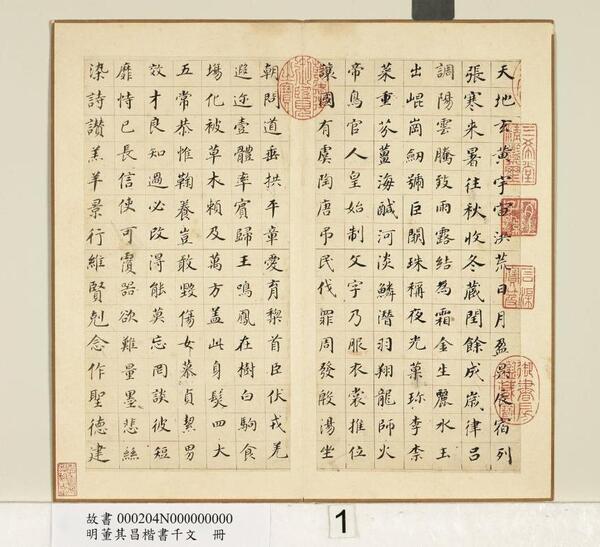 天地玄黃宇宙洪荒日月盈昃辰宿列
張寒来暑往秋收冬藏閏餘成歲律呂
調陽雲騰致雨露結為霜金生麗水玉
出崐崗劒號巨闕珠稱夜光菓珎李柰
菜重芥薑海鹹河淡鱗潛羽翔龍師火
帝鳥官人皇始制文字乃服衣裳推位
讓國有虞陶唐弔民伐罪周發殷湯坐
朝問道垂拱平章愛育黎首臣伏戎羌
遐迩壹體率賓歸王鳴鳳在樹白駒食
場化被草木賴及萬方盖此身髮四大
五常恭惟鞠養豈敢毀傷女慕貞絜男
效才良知過必改得能莫忘罔談彼短
靡恃己長信使可覆器欲難量墨悲絲
染詩讚羔羊景行維賢剋念作聖德建
三希堂
故書 000204N000000000
明董其昌楷書千文 冊
1